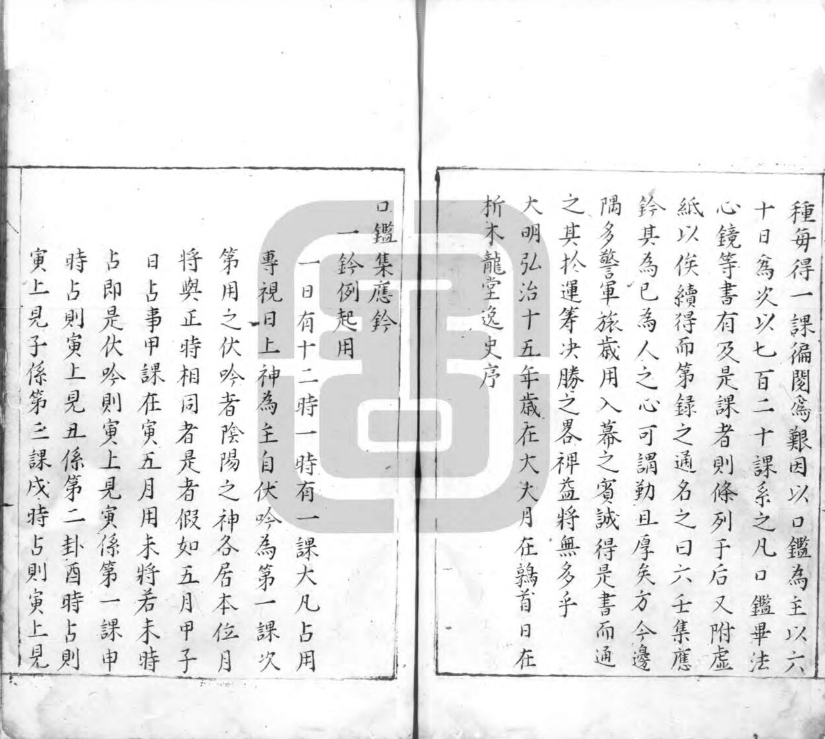 種每得一課徧閱爲艱因以口鑑為主以六
十日爲次以七百二十課系之凡口鑑畢法
心鏡等書有及是課者則條列于后又附虛
紙以俟續得而第録之通名之曰六壬集應
鈐其為已為人之心可謂勤且厚矣方今邊
隅多警軍旅歲用入幕之賓誠得是書而通
之其扵運筹决勝之畧裨益將無多乎
大明弘治十五年歲在大火月在鶉首日在
析木龍堂逸史序
口鑑集應鈐
一鈐例起用
一日有十二時一時有一課大凡占用
專視日上神為主自伏吟為第一課次
第用之伏吟者陰陽之神各居本位月
將與正時相同者是者假如五月甲子
日占事甲課在寅五月用未將若未時
占即是伏吟則寅上見寅係第一課申
時占則寅上見丑係第二卦酉時占則
寅上見子係第三課戌時占則寅上見